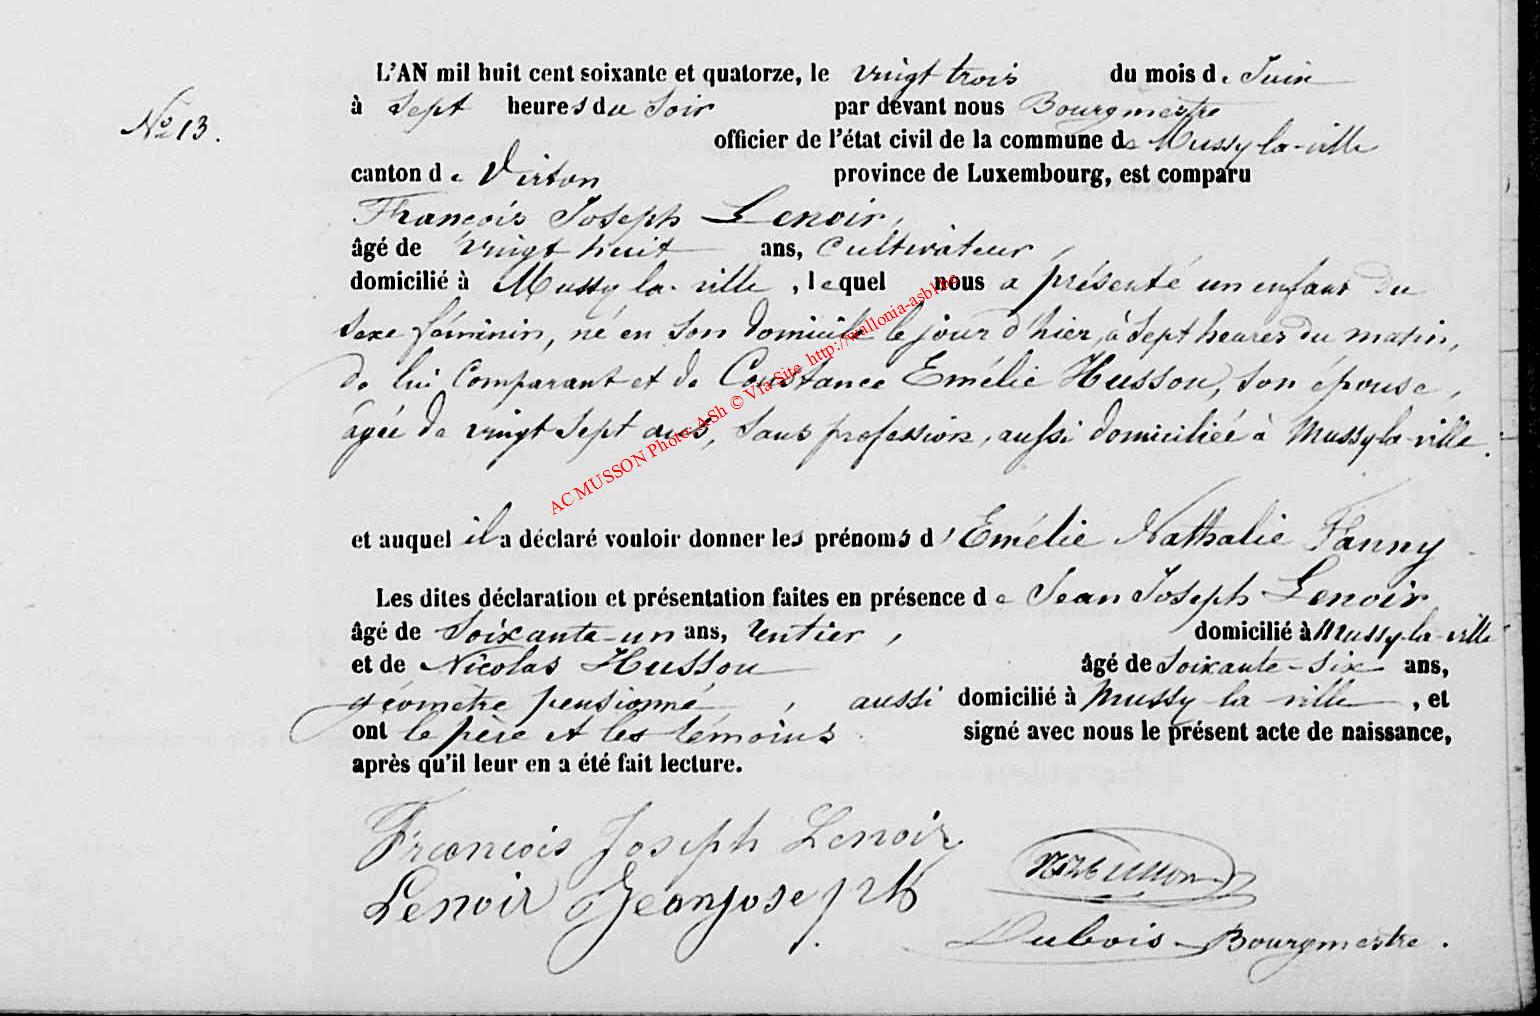 L'AN mil huit cent soixante et quatorze, le vingt trois du mois de Juin
No 13.
à Sept heures du Soir par devant nous Bourgmestre
officier de l'état civil de la commune de Mussy-la-ville
canton de Virton province de Luxembourg, est comparu
François Joseph Lenoir,
âgé de vingt huit ans, Cultivateur,
domicilié à Mussy-la-ville, lequel nous a présenté un enfant du
Sexe féminin, né en son domicile le jour d'hier, à Sept heures du matin,
de lui Comparant et de Constance Emélie Husson, son épouse,
âgée de vingt sept ans, sans profession, aussi domiciliée à Mussy-la-ville.
AC MUSSON Photo: ASh © Via Site http://wallonia-asbl.be
et auquel il a déclaré vouloir donner les prénoms d'Emélie Nathalie Fanny
Les dites déclaration et présentation faites en présence de Jean Joseph Lenoir
âgé de Soixante-un ans, rentier, domicilié à Mussy-la-ville
et de Nicolas Husson âgé de Soixante-six ans,
géomètre pensionné, aussi domicilié à Mussy-la-ville, et
ont le père et les témoins signé avec nous le présent acte de naissance,
après qu'il leur en a été fait lecture.
François Joseph Lenoir
Lenoir Jeanjoseph
Husson
Dubois Bourgmestre.